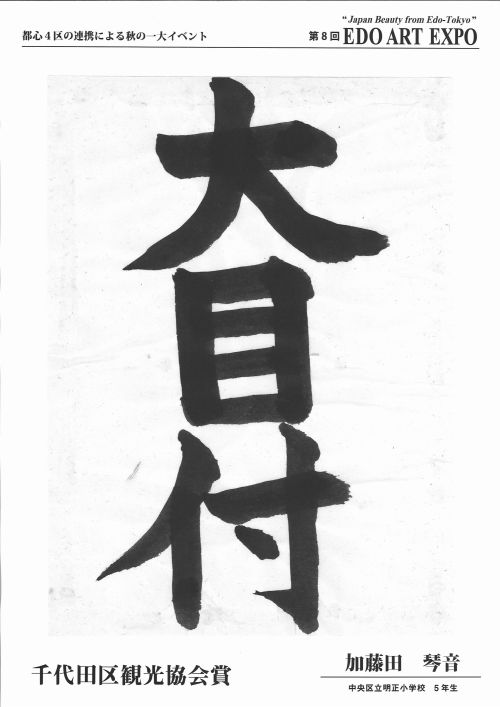 "Japan Beauty from Edo-Tokyo"
都心4区の連携による秋の一大イベント
第8回 EDO ART EXPO
大目付
千代田区観光協会賞
加藤田 琴音
中央区立明正小学校 5年生